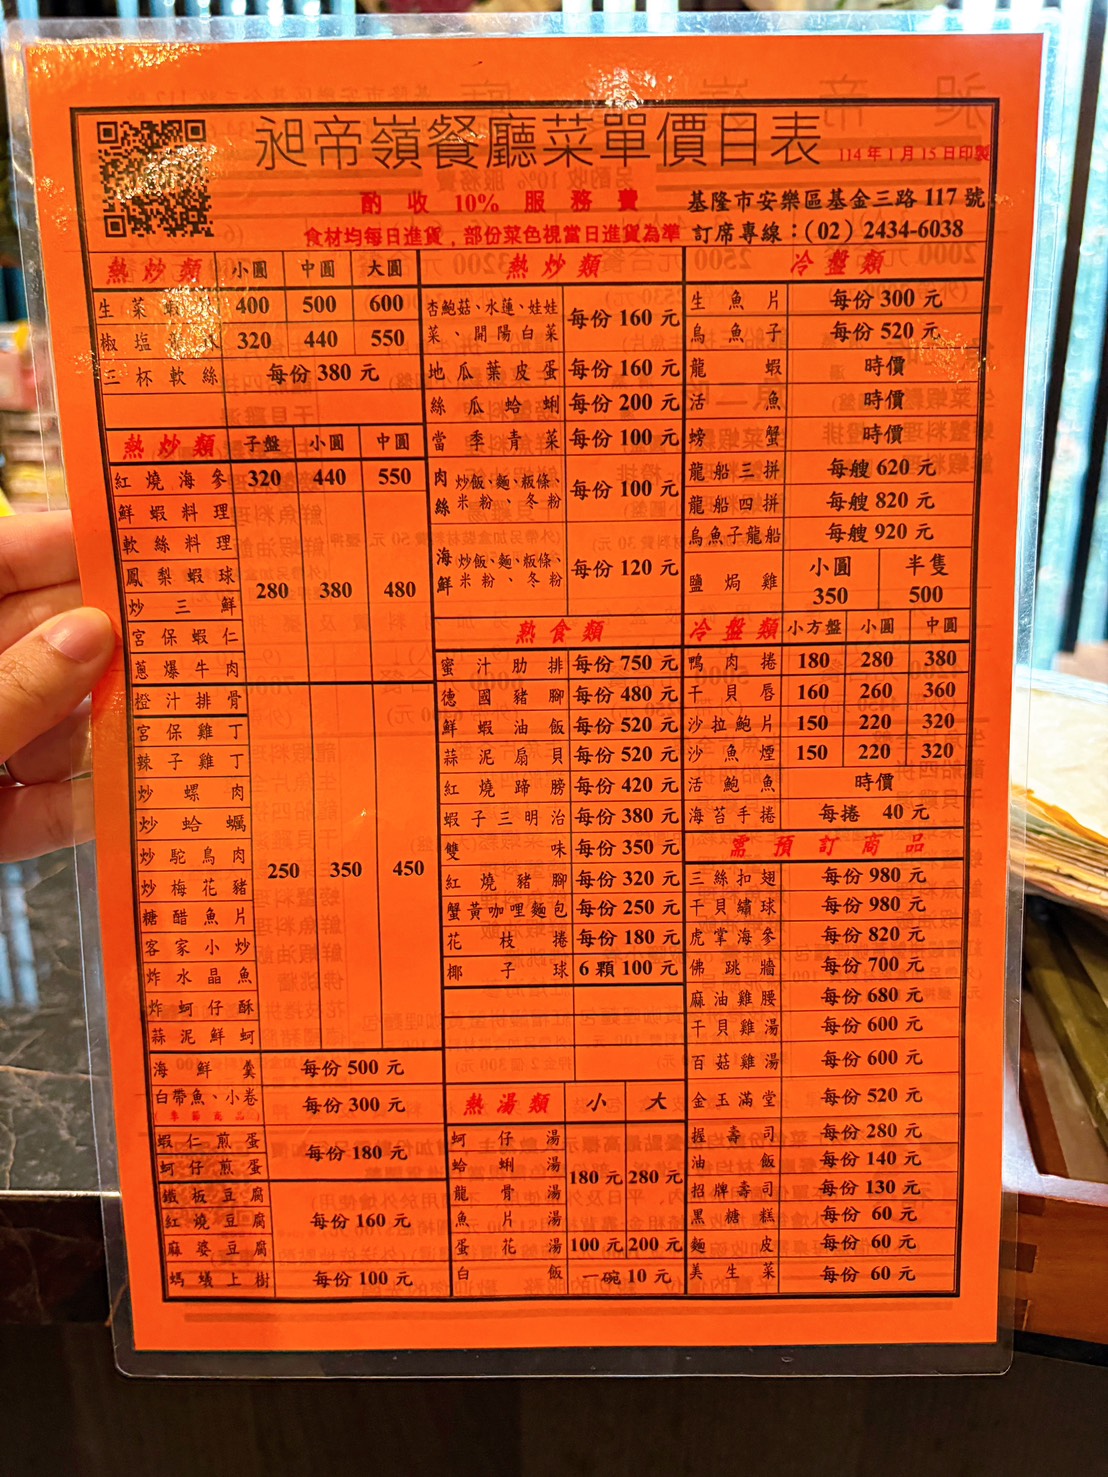 昶帝嶺餐廳菜單價目表
114年1月15日印製
酌收10%服務費
基隆市安樂區基金三路117號
食材均每日進貨，部份菜色視當日進貨為準
訂席專線：(02) 2434-6038
熱炒類 小圓 中圓 大圓
生菜蝦 400 500 600
椒塩 320 440 550
三杯軟絲 每份380元
熱炒類 子盤 小圓 中圓
紅燒海參 320 440 550
鮮蝦料理
軟絲料理
鳳梨蝦球
炒三鮮
宮保蝦仁
蔥爆牛肉
280 380 480
橙汁排骨
宮保雞丁
辣子雞丁
炒螺肉
炒蛤蠣
炒鴕鳥肉
炒梅花豬
糖醋魚片
客家小炒
炸水晶魚
炸蚵仔酥
蒜泥鮮蚵
250 350 450
海鮮羹 每份500元
白帶魚、小卷 每份300元
(季節商品)
蝦仁煎蛋
蚵仔煎蛋
每份180元
鐵板豆腐
紅燒豆腐
麻婆豆腐
每份160元
螞蟻上樹 每份100元
熱炒類
杏鮑菇、水蓮、娃娃
菜、開陽白菜
每份160元
地瓜葉皮蛋 每份160元
絲瓜蛤蜊 每份200元
當季青菜 每份100元
肉絲 炒飯、麵、粄條、
米粉、冬粉
每份100元
海鮮 炒飯、麵、粄條、
米粉、冬粉
每份120元
熱食類
蜜汁肋排 每份750元
德國豬腳 每份480元
鮮蝦油飯 每份520元
蒜泥扇貝 每份520元
紅燒蹄膀 每份420元
蝦子三明治 每份380元
雙味 每份350元
紅燒豬腳 每份320元
蟹黃咖哩麵包 每份250元
花枝捲 每份180元
椰子球 6顆100元
熱湯類 小 大
蚵仔湯
蛤蜊湯
龍骨湯
魚片湯
180元 280元
蛋花湯 100元 200元
白飯 一碗10元
冷盤類
生魚片 每份300元
烏魚子 每份520元
龍蝦 時價
活魚 時價
螃蟹 時價
龍船三拼 每艘620元
龍船四拼 每艘820元
烏魚子龍船 每艘920元
鹽焗雞 小圓 半隻
350 500
冷盤類 小方盤 小圓 中圓
鴨肉捲 180 280 380
干貝唇 160 260 360
沙拉鮑片 150 220 320
沙魚煙 150 220 320
活鮑魚 時價
海苔手捲 每捲 40元
需預訂商品
三絲扣翅 每份980元
干貝繡球 每份980元
虎掌海參 每份820元
佛跳牆 每份700元
麻油雞腰 每份680元
干貝雞湯 每份600元
百菇雞湯 每份600元
金玉滿堂 每份520元
握壽司 每份280元
油飯 每份140元
招牌壽司 每份130元
黑糖糕 每份60元
麵皮 每份60元
美生菜 每份60元